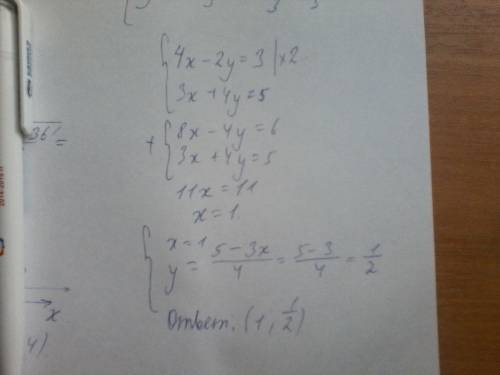 4x - 2y = 3 | x2
3x + 4y = 5
+ 8x - 4y = 6
3x + 4y = 5
11x = 11
x = 1.
x = 1
y = \frac{5 - 3x}{4} = \frac{5 - 3}{4} = \frac{1}{2}
Ответ. (1, \frac{1}{2})
36' =
x
4)